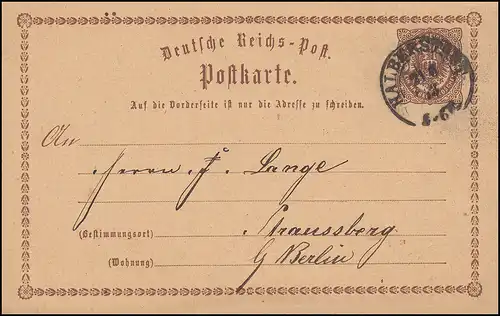 Deutsche Reichs-Post.
Postkarte.
Auf die Vorderseite ist nur die Adresse zu schreiben.
HALBERSTADT
5-6N
An
Herrn F. Lange
Straussberg
(Bestimmungsort)
(Wohnung)
b/ Berlin